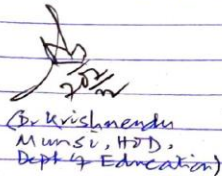 (Dr Krishnendu
Munsi, HOD,
Dept of Education)